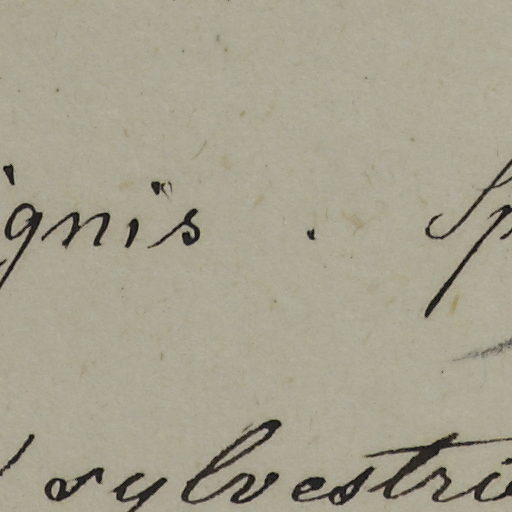 ignis . Sp
sylvestri